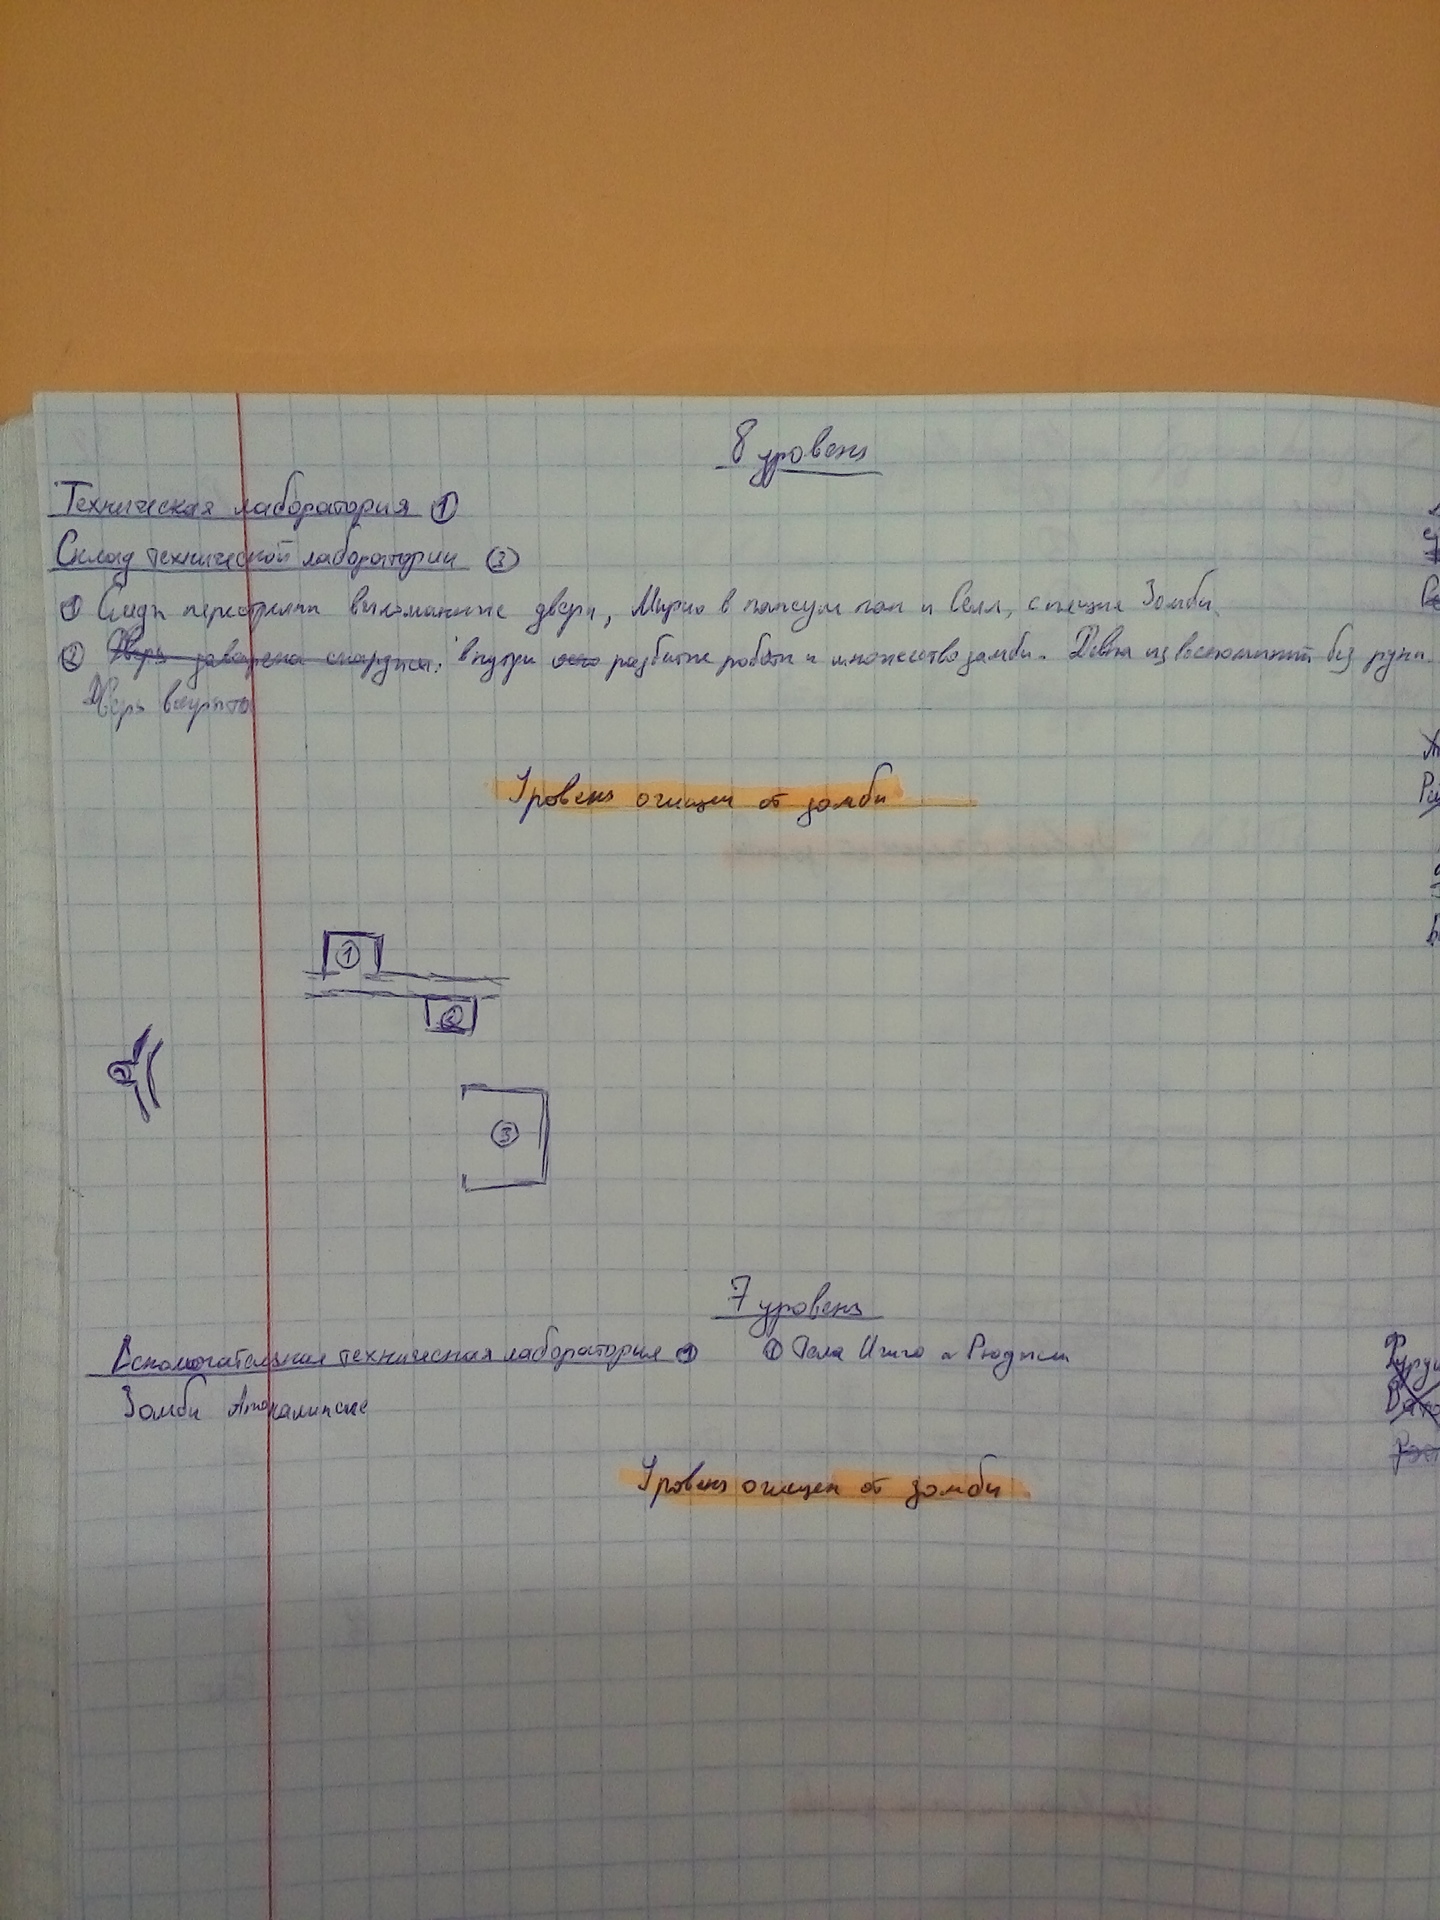 8 уровень
Техническая лаборатория ①
Склад технической лаборатории ③
① Следы перестрелки выломанные двери, в и Селл, спящие Зомби.
② Дверь заварена снаружи. внутри разбитые роботы и множество зомби. Девка из воспоминаний без руки.
Дверь вскрыта
Уровень очищен от зомби
①
②
②
③
7 уровень
Вспомогательная техническая лаборатория ① ① Тела и
Зомби Апокалипсис
Уровень очищен от зомби